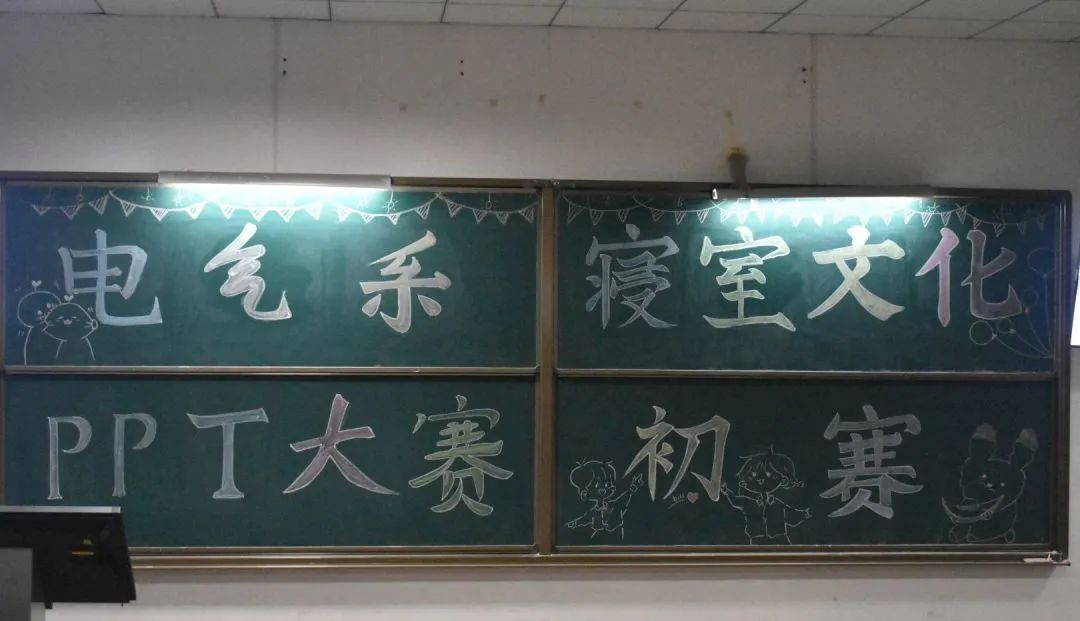 电气系 寝室文化
PPT大赛 初赛